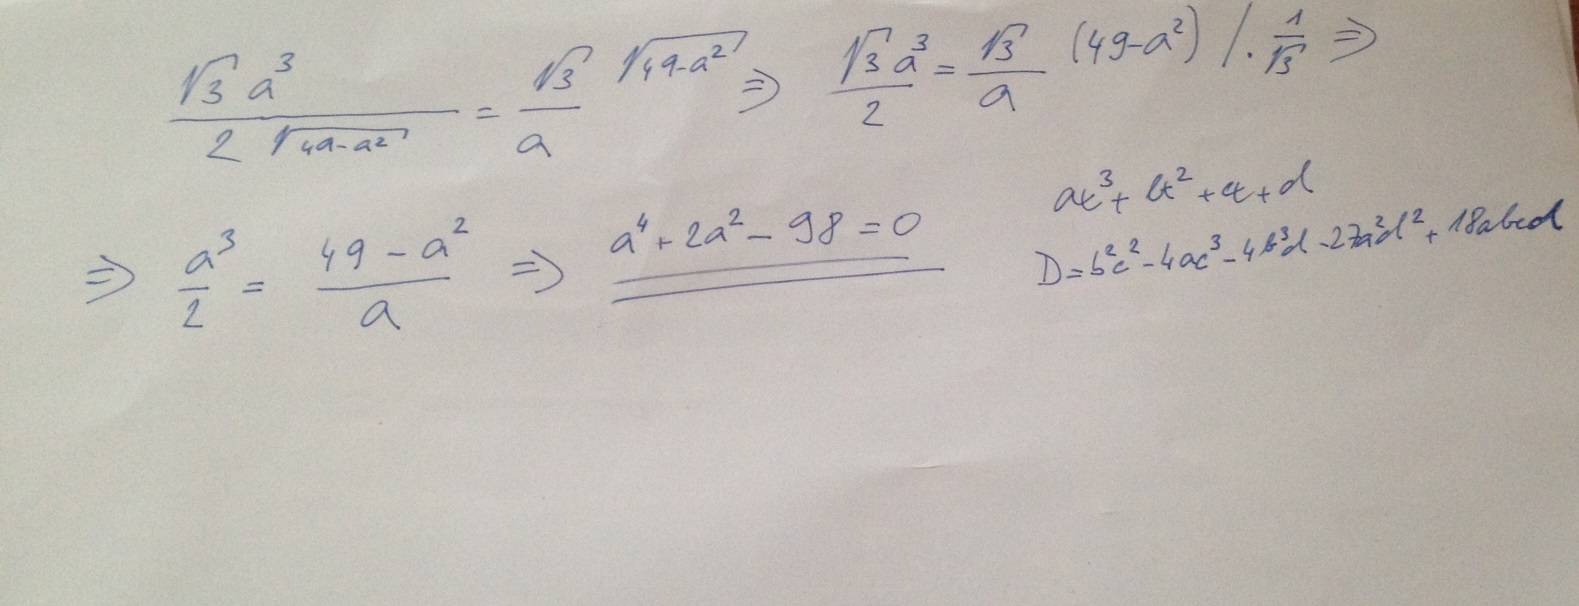 √3 a³ / 2 √(49-a²) = √3 / a √(49-a²) ⇒ √3 a³ / 2 = √3 / a (49-a²) / · 1/√3 ⇒
⇒ a³ / 2 = 49 - a² / a ⇒ a⁴ + 2a² - 98 = 0
at³ + bt² + ct + d
D = b²c² - 4ac³ - 4b³d - 27a²d² + 18abcd